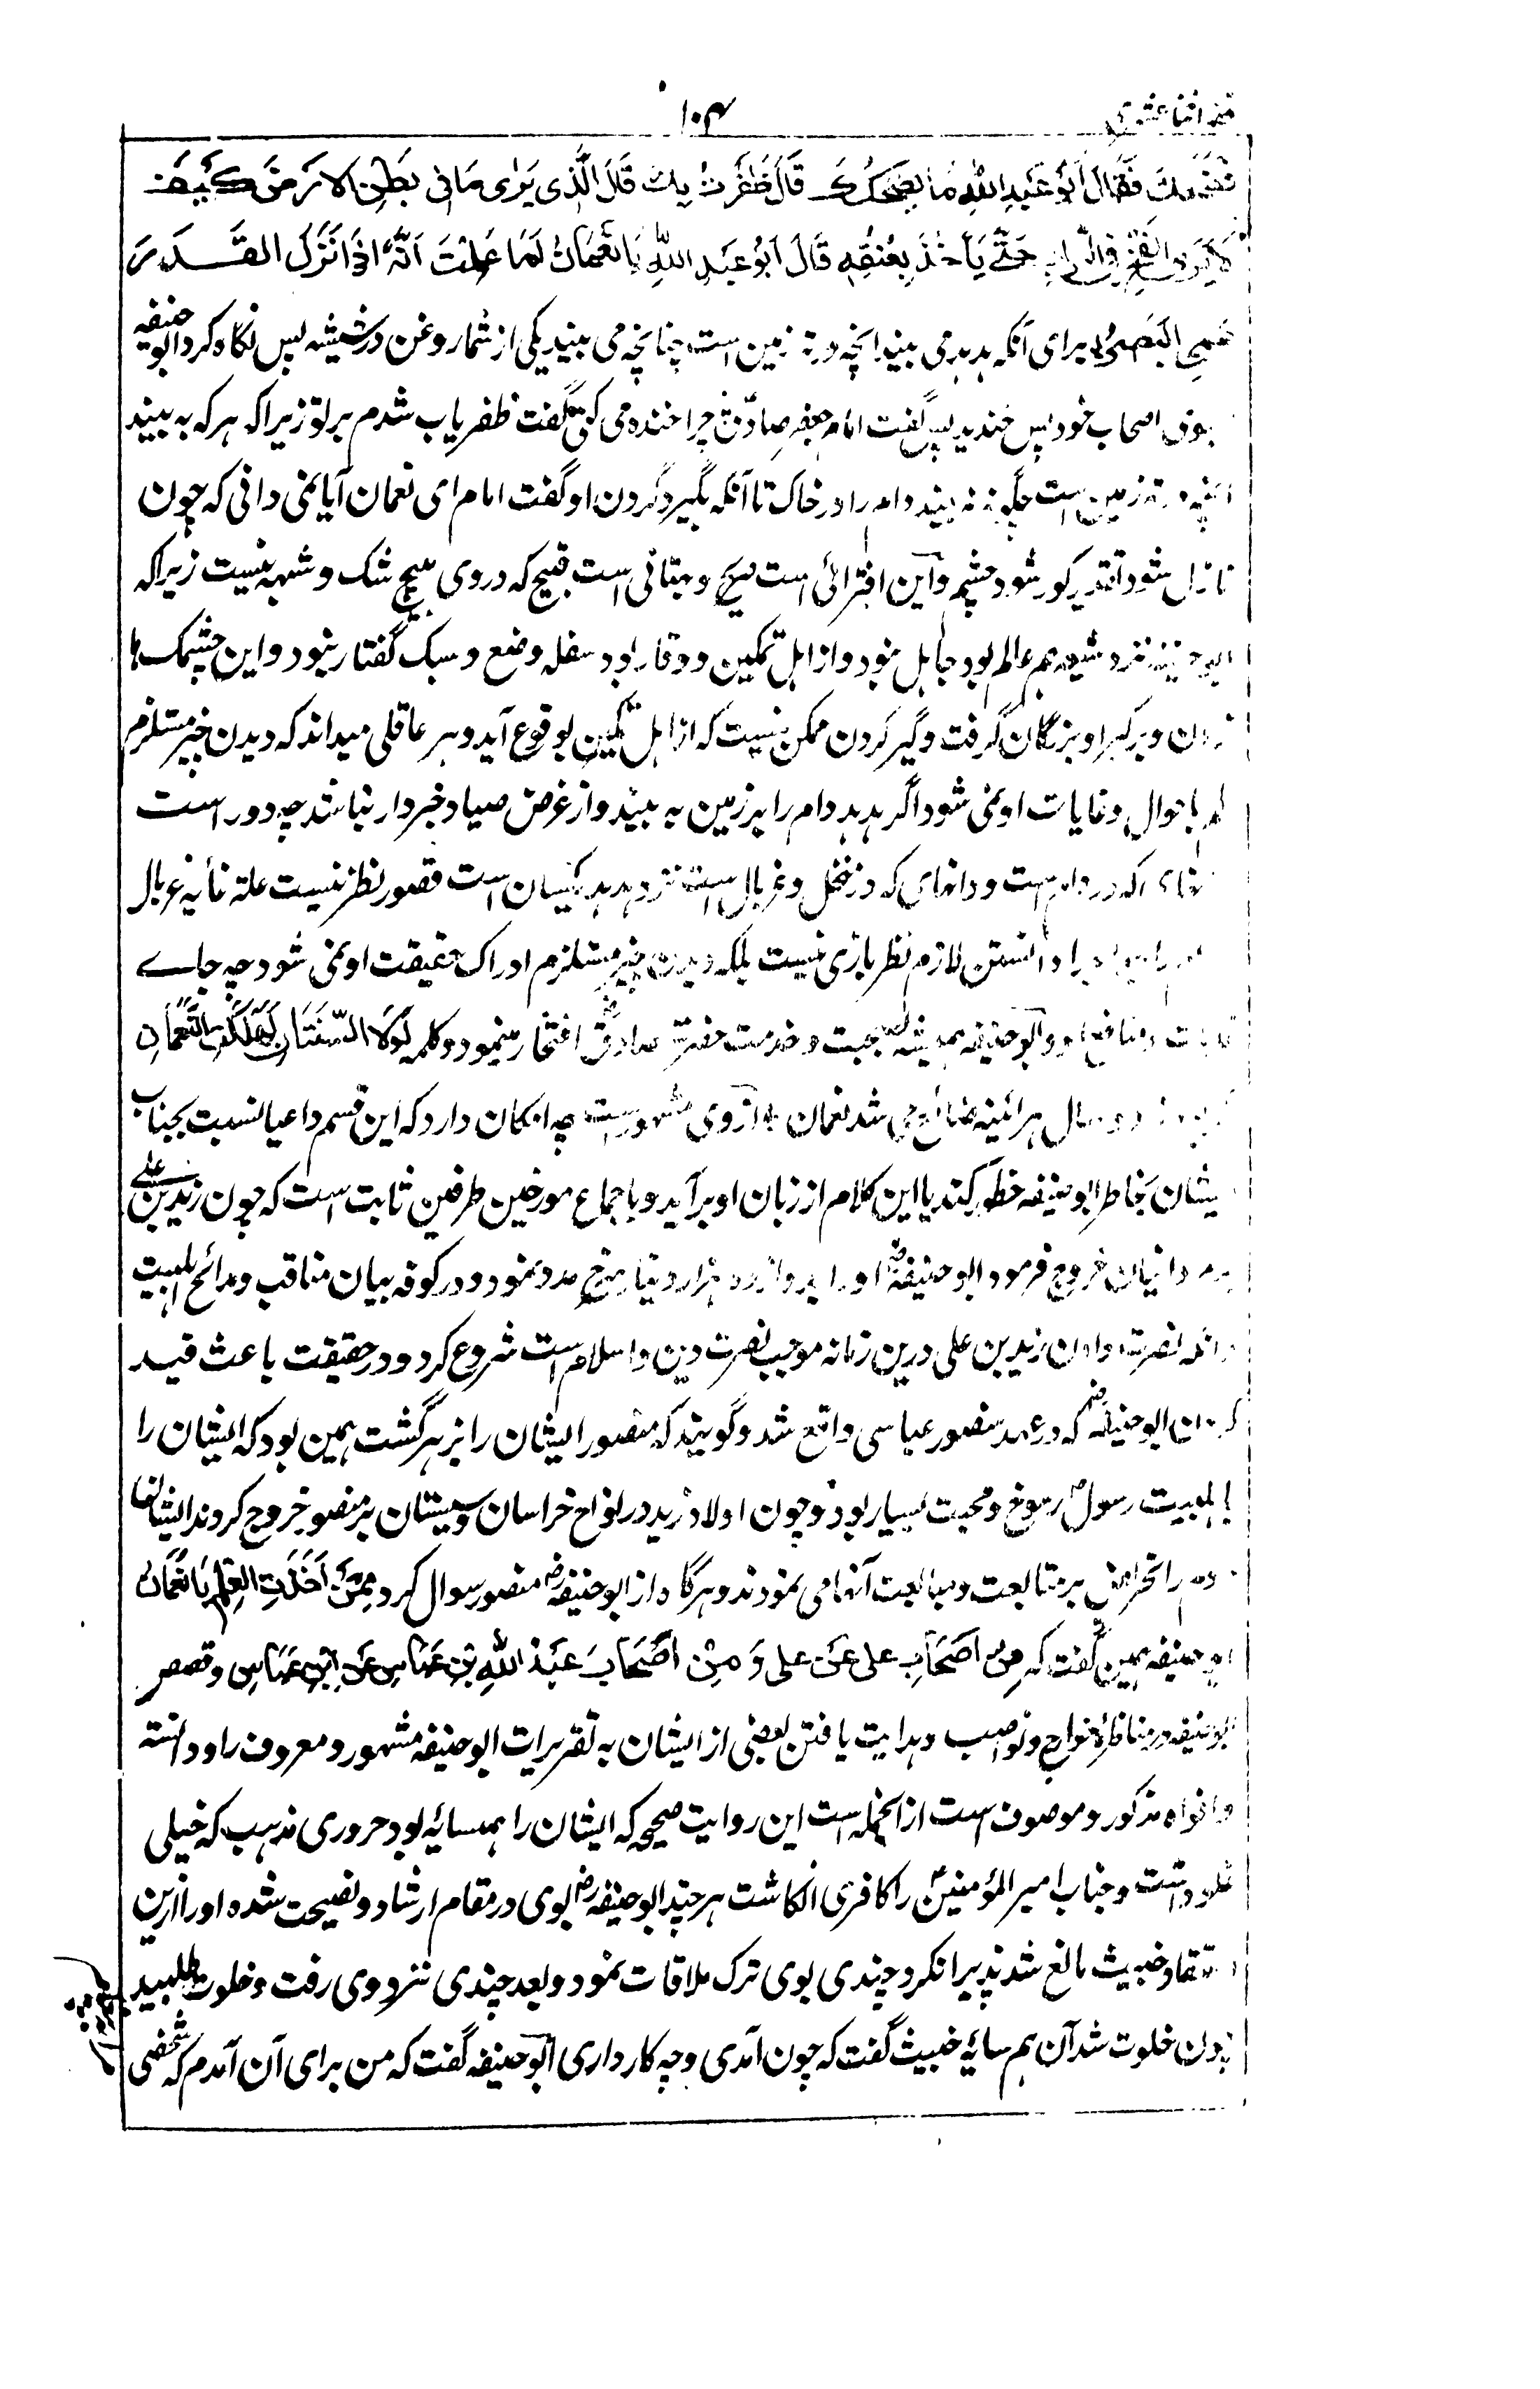 ۱۰۴
فقال ابو عبد الله ما يضحكك قال ظفرت بك قال الذی یری ما فی بطن الارض كيف
حتی یأخذ بعنقه قال ابو عبد الله یا نعمان لما علمت انه اذا نزل القدر
البصر برای آنکه هدهد می بیند انچه در ته زمین است چنانچه می بیند یکی از شما روغن در شیشه پس نگاه کرد ابو حنیفه
اصحاب خود پس خندید پس گفت امام جعفر صادق چرا خنده می کنی گفت ظفر یاب شدم بر تو زیرا که هر که به بیند
زمین است چگونه نه بیند دام را در خاک تا آنکه بگیرد گردن او گفت امام ای نعمان آیا نمی دانی که چون
نازل شود تقدیر کور شود چشم و این افترائی است صریح و بهتانی است قبیح که در وی هیچ شک و شبهه نیست زیرا که
نزد شیعه هم عالم بود جاهل نبود و از اهل تمکین و وقار بود سفله وضع و سبک گفتار نبود و این چشمک ها
و بر کبرا و بزرگان گرفت و گیر کردن ممکن نیست که از اهل تمکین بوقوع آید و هر عاقلی میداند که دیدن چیز مستلزم
و غایات او نمی شود اگر هدهد دام را بر زمین به بیند و از غرض صیاد خبردار نباشد چه دور است
که در دام است و دانهای که در منخل و غربال است نزد هدهد یکسان است قصور نظر نیست علت غائیه غربال
دانستن لازم نظر بازی نیست بلکه دیدن چیز مستلزم ادراک حقیقت او نمی شود چه جاے
و ابو حنیفه همیشه بصحبت و خدمت حضرت صادق افتخار مینمود و کلمه لولا السنتان لهلک النعمان
سال هر ائینه ضائع می شد نعمان از وی مشهور است چه امکان دارد که این قسم داعیا نسبت بجناب
ایشان بخاطر ابو حنیفه خطور کند یا این کلام از زبان او برآید و باجماع مورخین طرفین ثابت است که چون زید بن علی
خروج فرمود ابو حنیفه او را بدوازده هزار دینار سرخ مدد نمود و در کوفه بیان مناقب و مدائح اهلبیت
نصرت دادن زید بن علی درین زمانه موجب نصرت دین و اسلام است شروع کرد و در حقیقت باعث قید
کردن ابو حنیفه که در عهد منصور عباسی واقع شد و گویند که منصور ایشان را زهر گشت همین بود که ایشان را
باهلبیت رسول رسوخ و محبت بسیار بود و چون اولاد زید در نواح خراسان و سیستان بر منصور خروج کردند ایشان
مردم را تحریض بر متابعت و مبایعت آنها می نمودند و هر گاه از ابو حنیفه منصور سوال کرد ممن اخذت العلم یا نعمان
ابو حنیفه همین گفت که من اصحاب علی عن علی و من اصحاب عبد الله بن عباس عن ابن عباس و قصص
ابو حنیفه در مناظره خوارج و نواصب و هدایت یافتن بعضی از ایشان به تقریرات ابو حنیفه مشهور و معروف
مذکور و موصوف است از انجمله است این روایت صحیحه که ایشان را همسایه بود حروری مذهب که خیلی
غلو داشت و جناب امیر المؤمنین را کافر می انگاشت هر چند ابو حنیفه بوی در مقام ارشاد و نصیحت شده او را ازین
اعتقاد خبیث مانع شد پذیرا نکرد چندی بوی ترک ملاقات نمود و بعد چندی نزد وی رفت و خلوت طلبید
چون خلوت شد آن هم سایه خبیث گفت که چون آمدی و چه کار داری ابو حنیفه گفت که من برای آن آمدم که شخصی